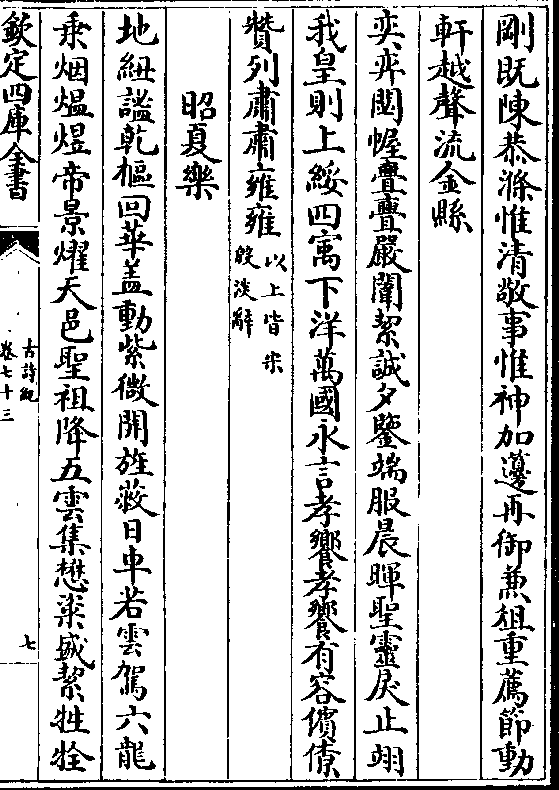 剛既陳恭滌惟清敬事惟神加籩再御兼俎重薦節動
軒越聲流金縣
奕奕閟幄亹亹嚴闈絜誠夕鑒端服晨暉聖靈戾止翊
我皇則上綏四寓下洋萬國永言孝饗孝饗有容儐僚
贊列肅肅雍雍以上皆宋殷淡辭
昭夏樂
地紐謐乾樞回華盖動紫微開旌蔽日車若雲駕六龍
乗烟熅煜帝景耀天邑聖祖降五雲集懋粢盛絜牲牷
欽定四庫全書
古詩紀
卷七十三
七